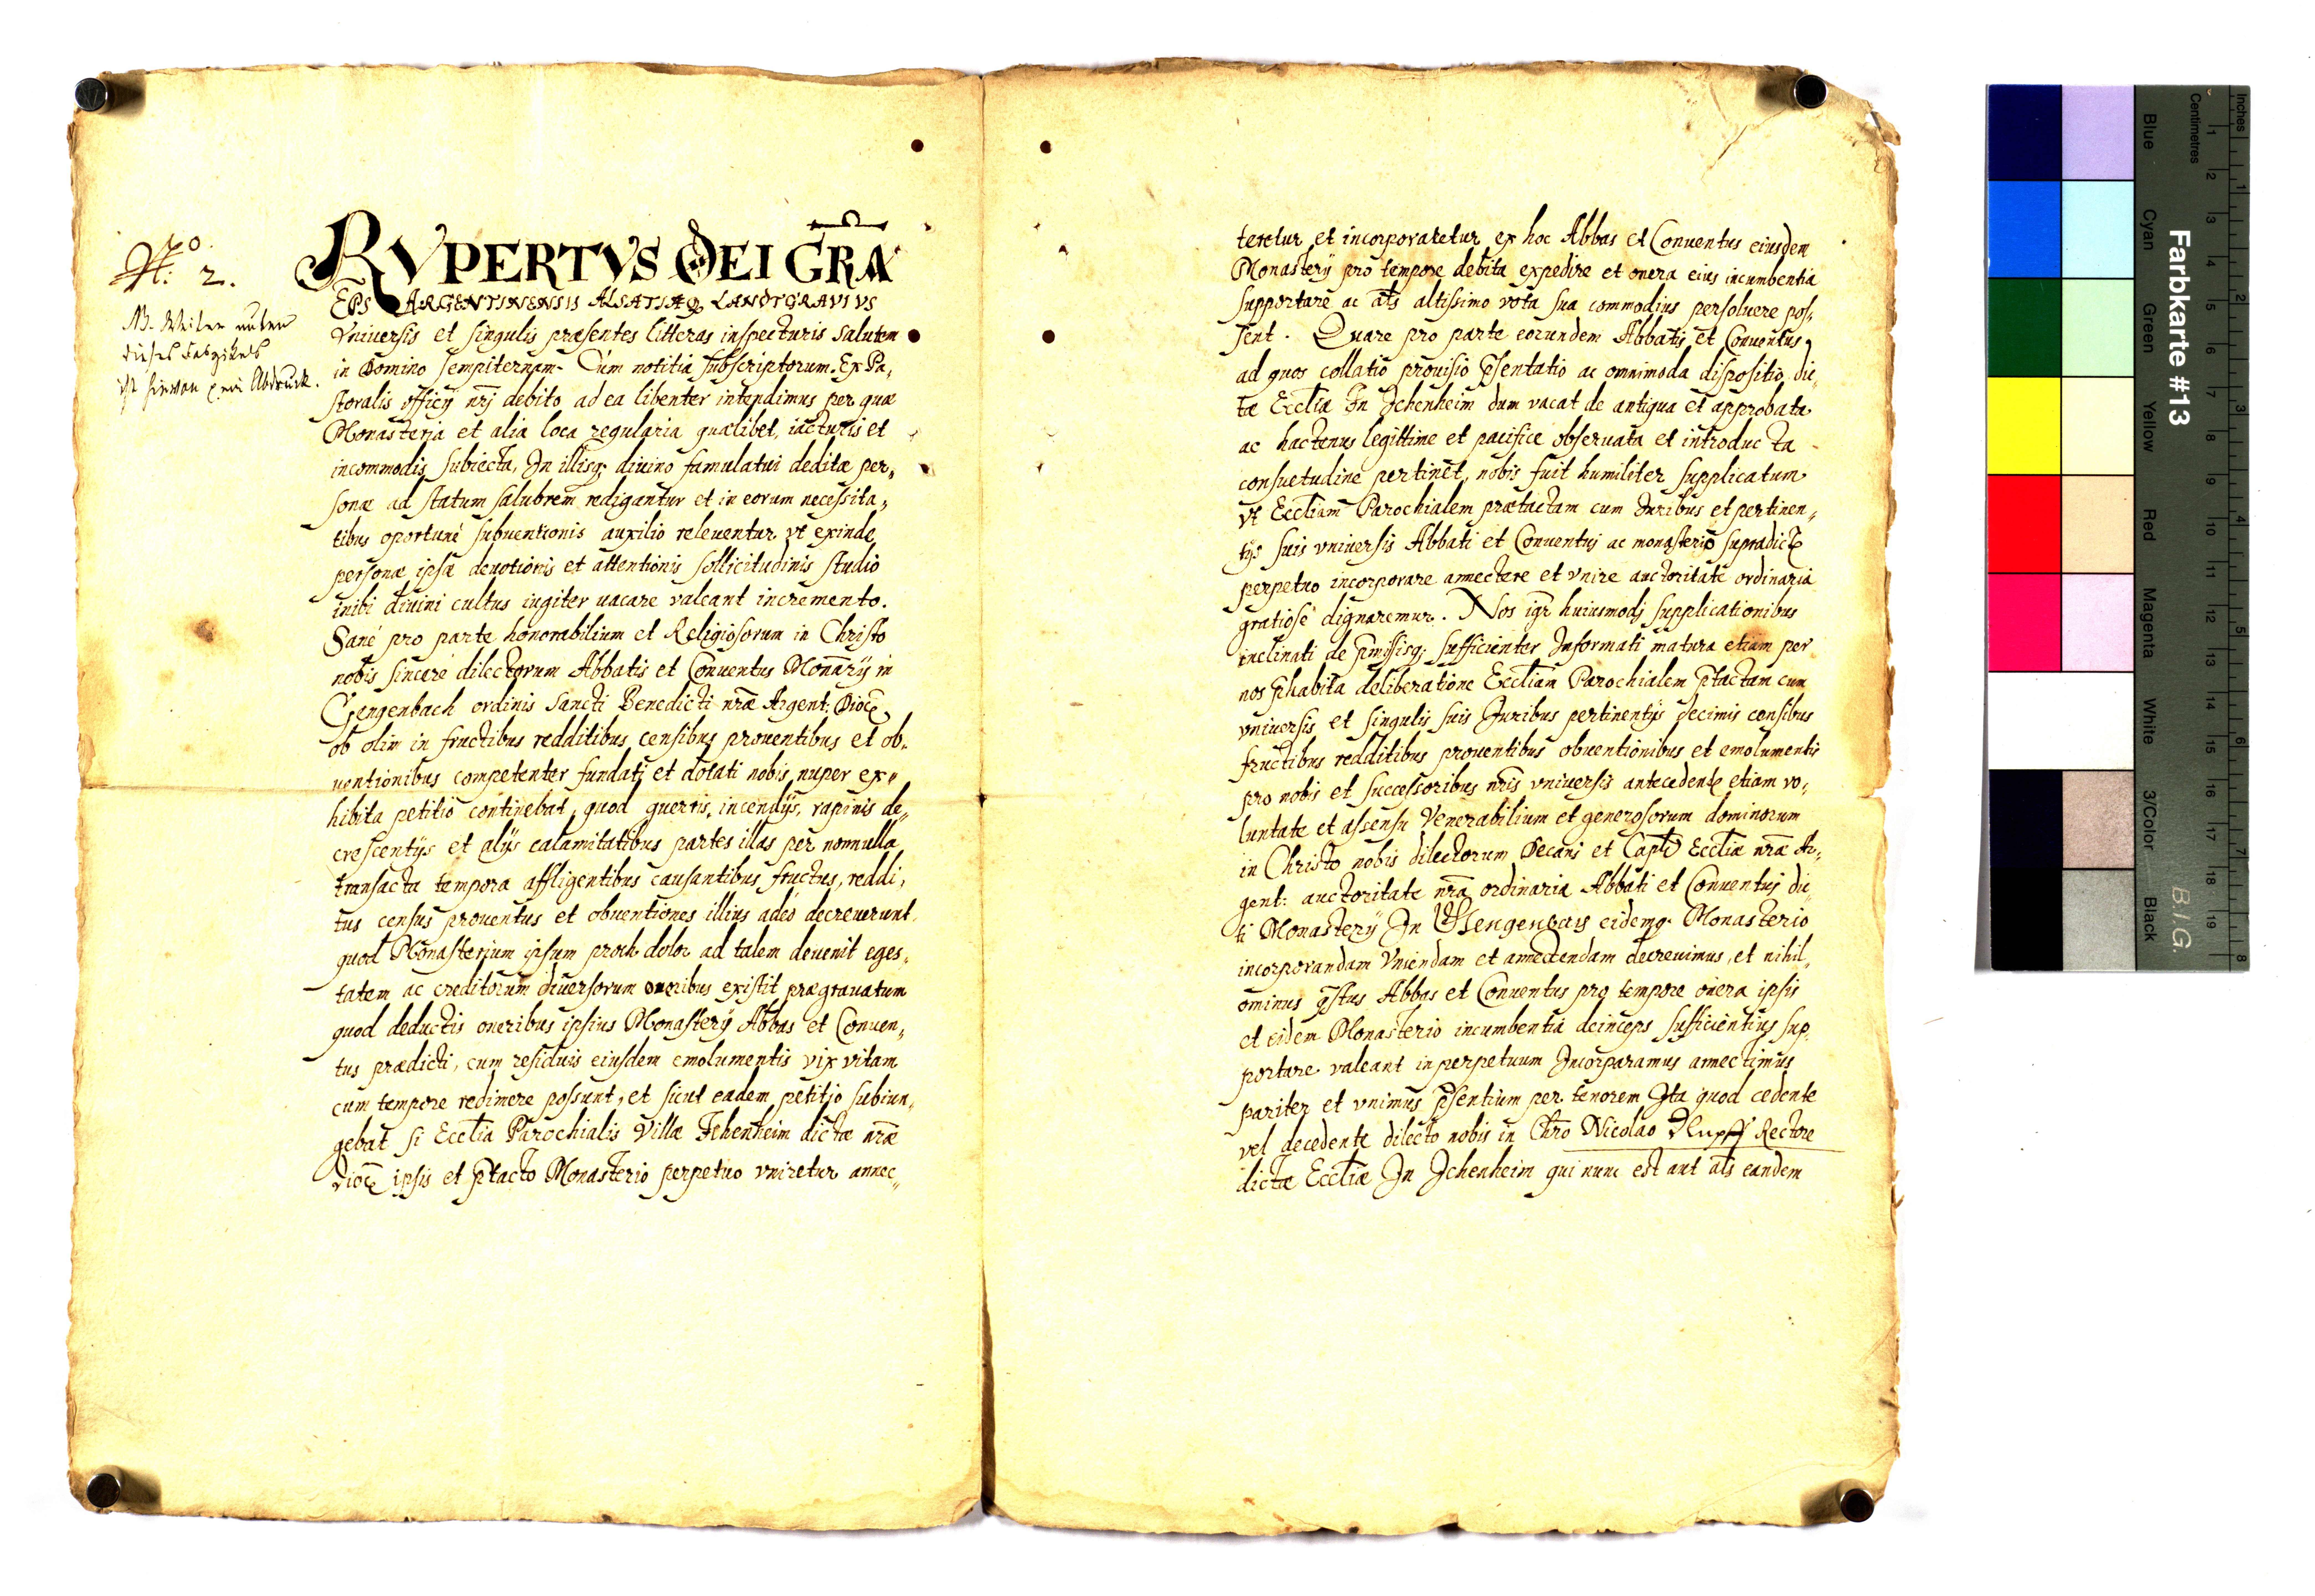 No: 2.
NB. Weiter unten
dieses Faszikels
ist hievon ein Abdruck.
RVPERTVS DEI GRA
EPS ARGENTINENSIS ALSATIÆQ LANDTGRAVIVS
Vniuersis et singulis præsentes litteras inspecturis Salutem
in Domino sempiternam. Cum notitia subscriptorum. Ex Pa„
storalis officÿ nrj debito ad ea libenter intendimus per quæ
Monasteria et alia loca regularia quælibet, iacturis et
incommodis subiecta, In illisq; diuino famulatui deditæ per„
sonæ ad statum salubrem redigantur et in eorum necessita„
tibus oportuné subuentionis auxilio releuentur, vt exinde
personæ ipsæ deuotionis et attentionis sollicitudinis studio
inibi diuini cultus iugiter uacare valeant incremento.
Sané pro parte honorabilium et Religiosorum in Christo
nobis sinceré dilectorum Abbatis et Conuentus Monrÿ in
Gengenbach ordinis Sancti Benedicti nræ Argent: Dioc
ob olim in fructibus redditibus censibus prouentibus et ob„
uentionibus competenter fundati et dotati nobis nuper ex„
hibita petitio continebat, quod guerris, incendÿs, rapinis de„
crescentÿs et alÿs calamitatibus partes illas per nonnulla
transacta tempora affligentibus causantibus fructus, reddi„
tus census prouentus et obuentiones illius adeò decreuerunt
quod Monasterium ipsum proh dolor ad talem deuenit eges„
tatem ac creditorum diuersorum oneribus existit prægrauatum
quod deductis oneribus ipsius Monasterÿ Abbas et Conuen„
tus prædicti, cum residuis eiusdem emolumentis vix vitam
cum tempore redimere possunt, et sicut eadem petitio subiun„
gebat si Ecctia Parochialis Villæ Ichenheim dictæ nræ
Dioc ipsis et ptacto Monasterio perpetuo vniretur annec„
teretur et incorporaretur ex hoc Abbas et Conuentus eiusdem
Monasterÿ pro tempore debita expedire et onera eius incumbentia
supportare ac ats altissimo vota sua commodius persoluere pos„
sent. Quare pro parte eorundem Abbatis et Conuentus,
ad quos collatio prouisio psentatio ac omnimoda dispositio dic„
tæ Ecctiæ In Ichenheim dum vacat de antiqua et approbata
ac hactenus legittime et pacifice obseruata et introducta
consuetudine pertinet, nobis fuit humiliter supplicatum
vt Ecctiam Parochialem prætactam cum Iuribus et pertinen„
tÿs suis vniuersis Abbati et Conuentuj ac monasterio supradict
perpetuo incorporare annectere et vnire auctoritate ordinaria
gratiosé dignaremur. Nos igr huiusmodj supplicationibus
inclinati de pmissisq; sufficienter Informati matura etiam per
nos phabita deliberatione Ecctiam Parochialem ptactam cum
vniuersis et singulis suis Iuribus pertinentÿs decimis censibus
fructibus redditibus prouentibus obuentionibus et emolumentis
pro nobis et successoribus nris vniuersis antecedente etiam vo„
luntate et assensu Venerabilium et generosorum dominorum
in Christo nobis dilectorum Decani et Capti Ecctiæ nræ Ar„
gent: auctoritate nra ordinaria Abbati et Conuentuj dic„
ti Monasterÿ In Gengenbach eidemq. Monasterio
incorporandam Vniendam et annectendam decreuimus, et nihil„
ominus pstus Abbas et Conuentus pro tempore onera ipsis
et eidem Monasterio incumbentia deinceps sufficientius sup„
portare valeant in perpetuum Incorparamus annectimus
pariter et vnimus psentium per tenorem Ita quod cedente
vel decedente dilecto nobis in Chro Nicolao Rectore
dictæ Ecctiæ In Ichenheim qui nunc est aut ats eandem
Farbkarte #13
B.I.G.
Blue Cyan Green Yellow Red Magenta White 3/Color Black
Centimetres 1 2 3 4 5 6 7 8 9 10 11 12 13 14 15 16 17 18 19
Inches 1 2 3 4 5 6 7 8